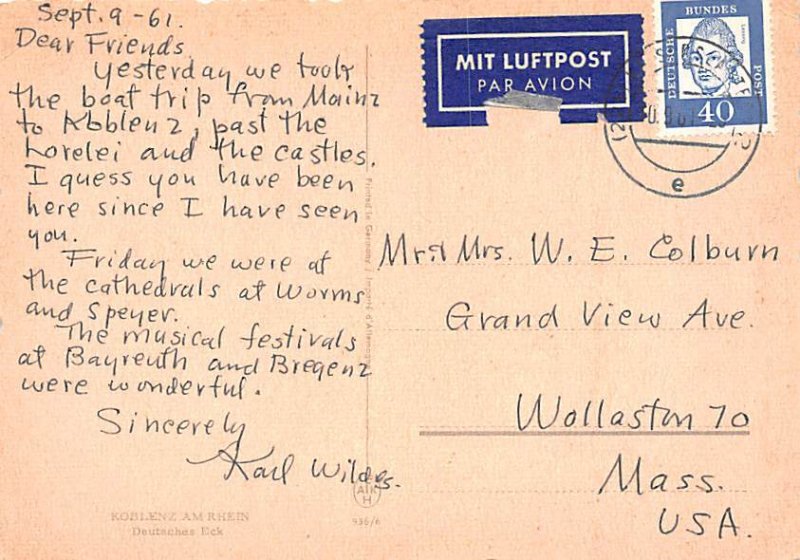 Sept. 9 - 61.
Dear Friends
Yesterday we took
the boat trip from Mainz
to Koblenz, past the
Lorelei and the castles.
I guess you have been
here since I have seen
you.
Friday we were at
the cathedrals at Worms
and Speyer.
The musical festivals
at Bayreuth and Bregenz
were wonderful.
Sincerely
Karl Wildes.
KOBLENZ AM RHEIN
Deutsches Eck
Printed in Germany / Imprimé d'Allemagne
936/6
MIT LUFTPOST
PAR AVION
DEUTSCHE
BUNDES
POST
Lessing
40
e
Mr & Mrs. W. E. Colburn
Grand View Ave.
Wollaston 70
Mass.
USA.